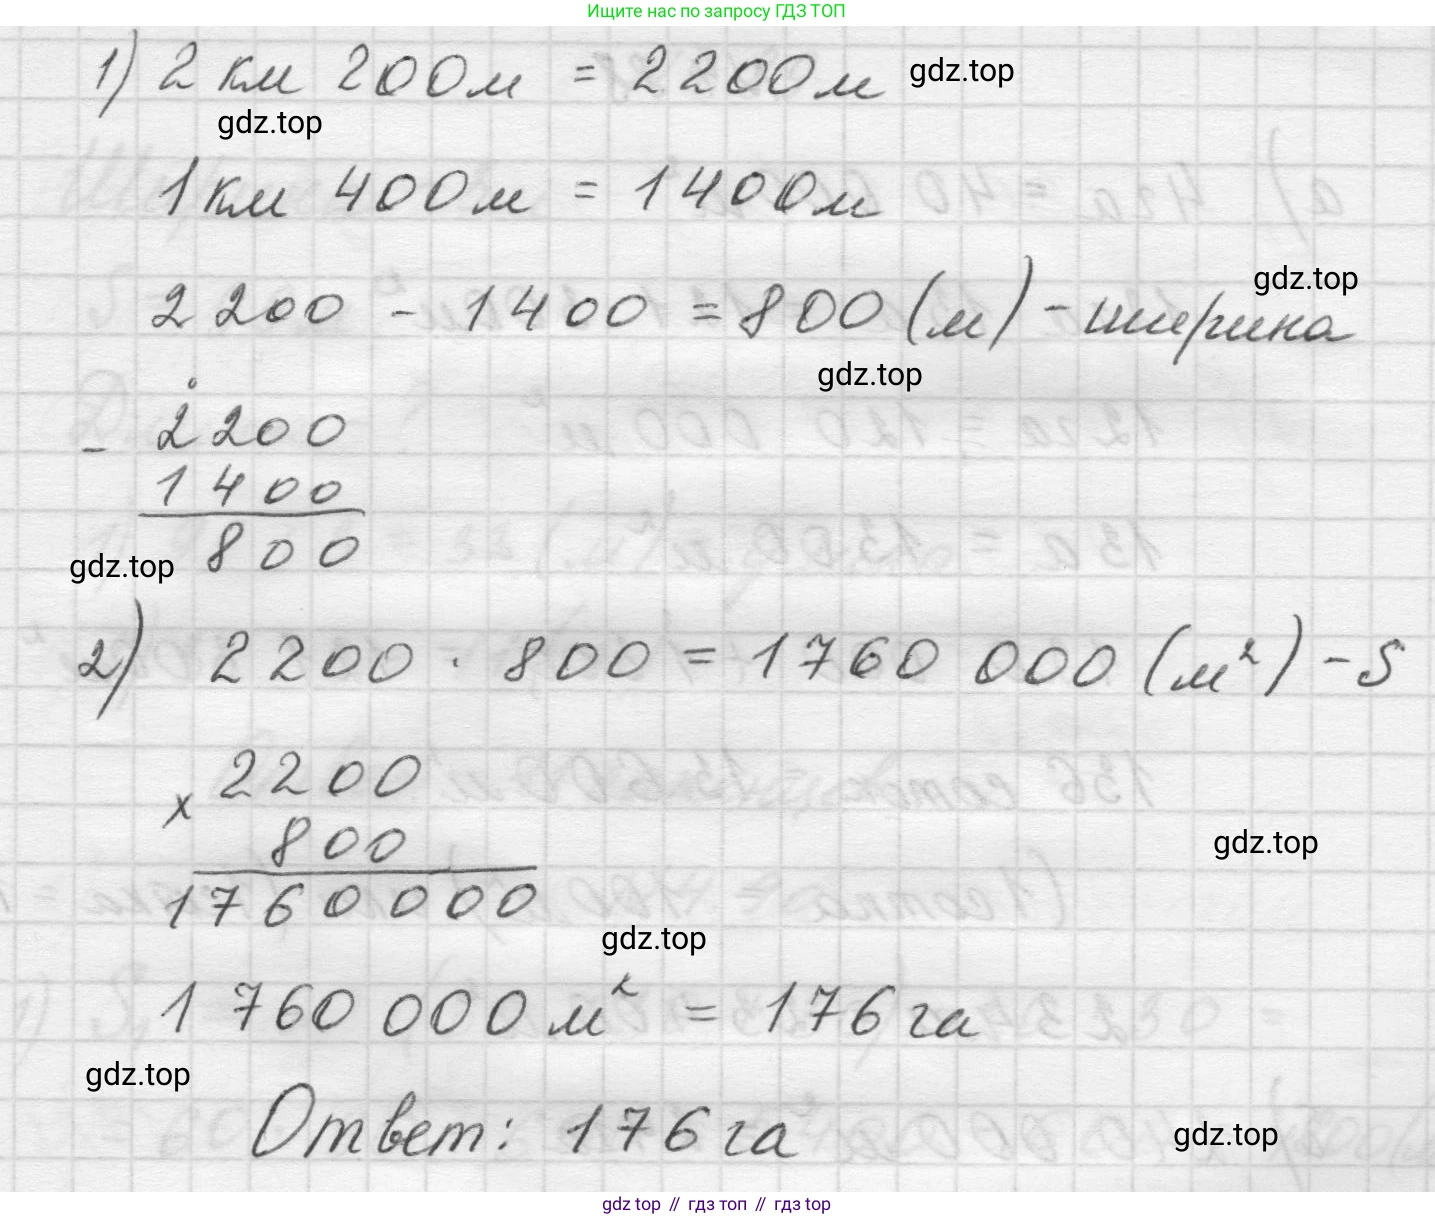 Ищите нас по запросу ГДЗ ТОП
1) 2 км 200м = 2200м gdz.top
gdz.top
1км 400м = 1400м
gdz.top
2200 - 1400 = 800 (м) - ширина
gdz.top
- 2200
1400
800
gdz.top
2) 2200 · 800 = 1760 000 (м²) - S
x 2200
800
gdz.top
1760000
gdz.top
1 760 000 м² = 176 га
gdz.top
Ответ: 176 га
gdz.top
gdz top // гдз топ // гдз top